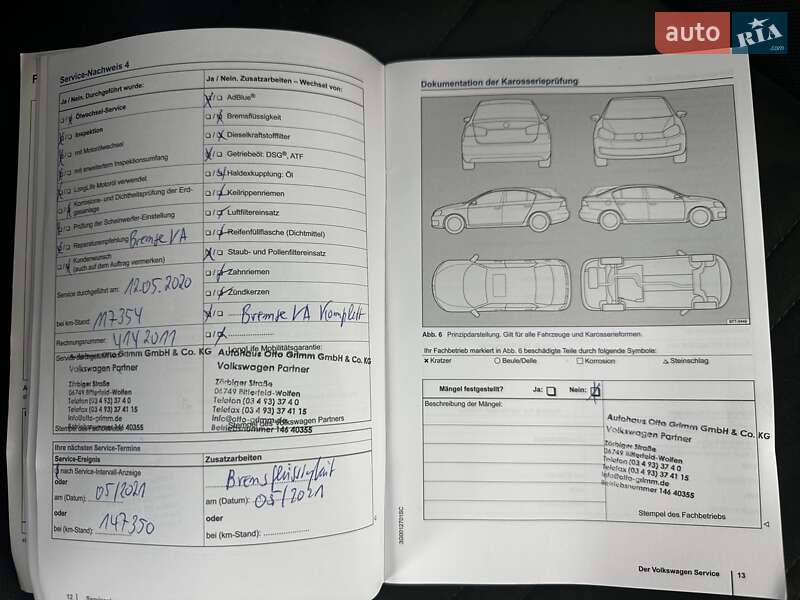 auto RIA
Service-Nachweis 4
Ja / Nein. Durchgeführt wurde:
Ölwechsel-Service
Inspektion
mit Motorölwechsel
mit erweitertem Inspektionsumfang
LongLife Motoröl verwendet
Korrosions- und Dichtheitsprüfung der Erd-
gasanlage
Prüfung der Scheinwerfer-Einstellung
Reparaturempfehlung Bremse VA
Kundenwunsch
(auch auf dem Auftrag vermerken)
Service durchgeführt am: 12.05.2020
bei km-Stand: 117354
Rechnungsnummer: 4142011
Autohaus Otto Grimm GmbH & Co. KG
Volkswagen Partner
Zörbiger Straße
06749 Bitterfeld-Wolfen
Telefon (03 4 93) 37 4 0
Telefax (03 4 93) 37 41 15
info@otto-grimm.de
Ja / Nein. Zusatzarbeiten – Wechsel von:
AdBlue®
Bremsflüssigkeit
Dieselkraftstofffilter
Getriebeöl: DSG®, ATF
Haldexkupplung: Öl
Keilrippenriemen
Luftfiltereinsatz
Reifenfüllflasche (Dichtmittel)
Staub- und Pollenfiltereinsatz
Zahnriemen
Zündkerzen
Bremse VA Komplett
LongLife Mobilitätsgarantie:
Autohaus Otto Grimm GmbH & Co. KG
Volkswagen Partner
Zörbiger Straße
06749 Bitterfeld-Wolfen
Telefon (03 4 93) 37 4 0
Telefax (03 4 93) 37 41 15
info@otto-grimm.de
Betriebsnummer 146 40355
Stempel des Volkswagen Partners
Ihre nächsten Service-Termine
Service-Ereignis
nach Service-Intervall-Anzeige
oder
am (Datum): 05/2021
oder
bei (km-Stand): 147350
Zusatzarbeiten
Bremsflüssigkeit
am (Datum): 05/2021
oder
bei (km-Stand):
12
Dokumentation der Karosserieprüfung
Abb. 6 Prinzipdarstellung. Gilt für alle Fahrzeuge und Karosserieformen.
Ihr Fachbetrieb markiert in Abb. 6 beschädigte Teile durch folgende Symbole:
× Kratzer ○ Beule/Delle □ Korrosion △ Steinschlag.
Mängel festgestellt? Ja: Nein:
Beschreibung der Mängel:
Autohaus Otto Grimm GmbH & Co. KG
Volkswagen Partner
Zörbiger Straße
06749 Bitterfeld-Wolfen
Telefon (03 4 93) 37 4 0
Telefax (03 4 93) 37 41 15
info@otto-grimm.de
Betriebsnummer 146 40355
Stempel des Fachbetriebs
3G0012701SC
Der Volkswagen Service 13